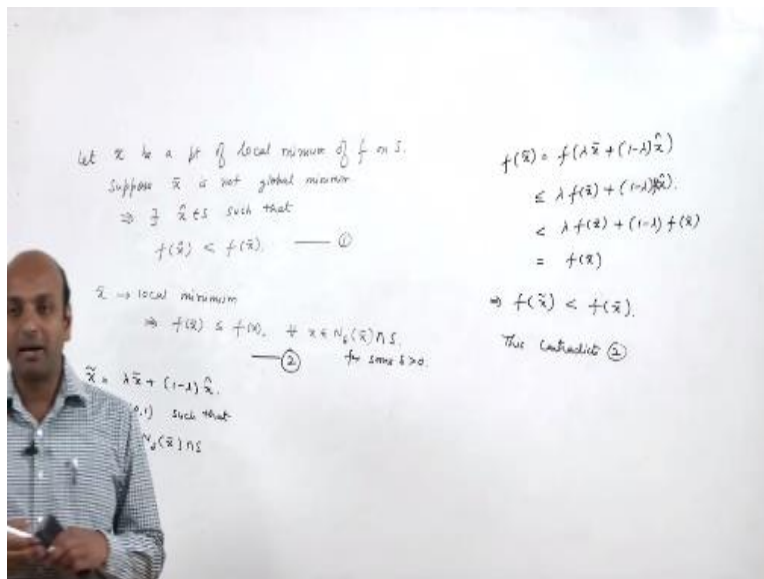 Let x̄ be a pt of local minimum of f on S.
Suppose x̄ is not global minimum
⇒ ∃ x̂ ∈ S such that
f(x̂) < f(x̄). —— ①
x̄ → local minimum
⇒ f(x̄) ≤ f(x), ∀ x ∈ N_δ(x̄) ∩ S.
—— ② for some δ > 0.
x̃ = λx̄ + (1-λ)x̂.
0,1) such that
N_δ(x̄) ∩ S
f(x̃) = f(λx̄ + (1-λ)x̂)
≤ λf(x̄) + (1-λ)f(x̂).
< λf(x̄) + (1-λ)f(x̄)
= f(x̄)
⇒ f(x̃) < f(x̄).
This contradicts ②